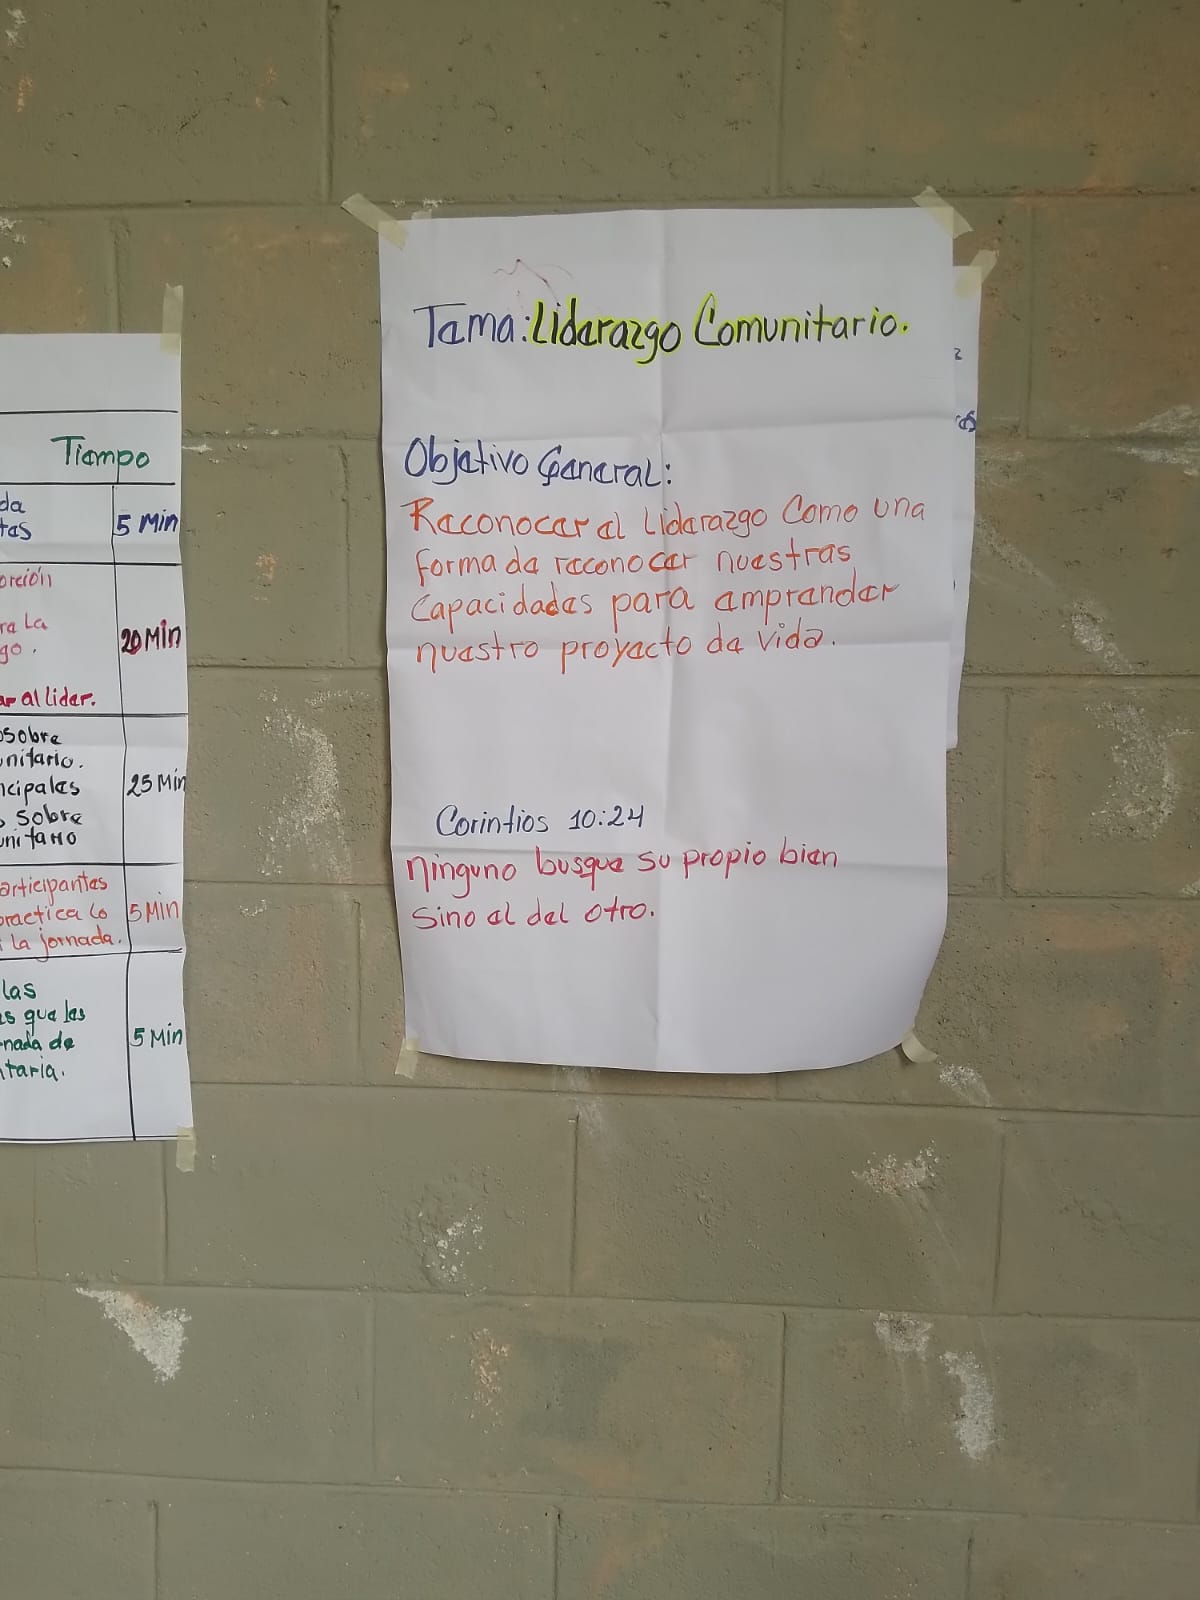 Tiempo
da
tas
5 Min
orción
ra La
go.
ar al lider.
20 Min
sobre
unitario.
ncipales
s sobre
unitario
25 Min
articipantes
practica lo
la jornada.
5 Min
las
as que las
nada de
itaria.
5 Min
Tema: Liderazgo Comunitario.
Objetivo General:
Reconocer el Liderazgo Como una
forma de reconocer nuestras
Capacidades para emprender
nuestro proyecto de vida.
Corintios 10:24
Ninguno busque su propio bien
Sino el del otro.